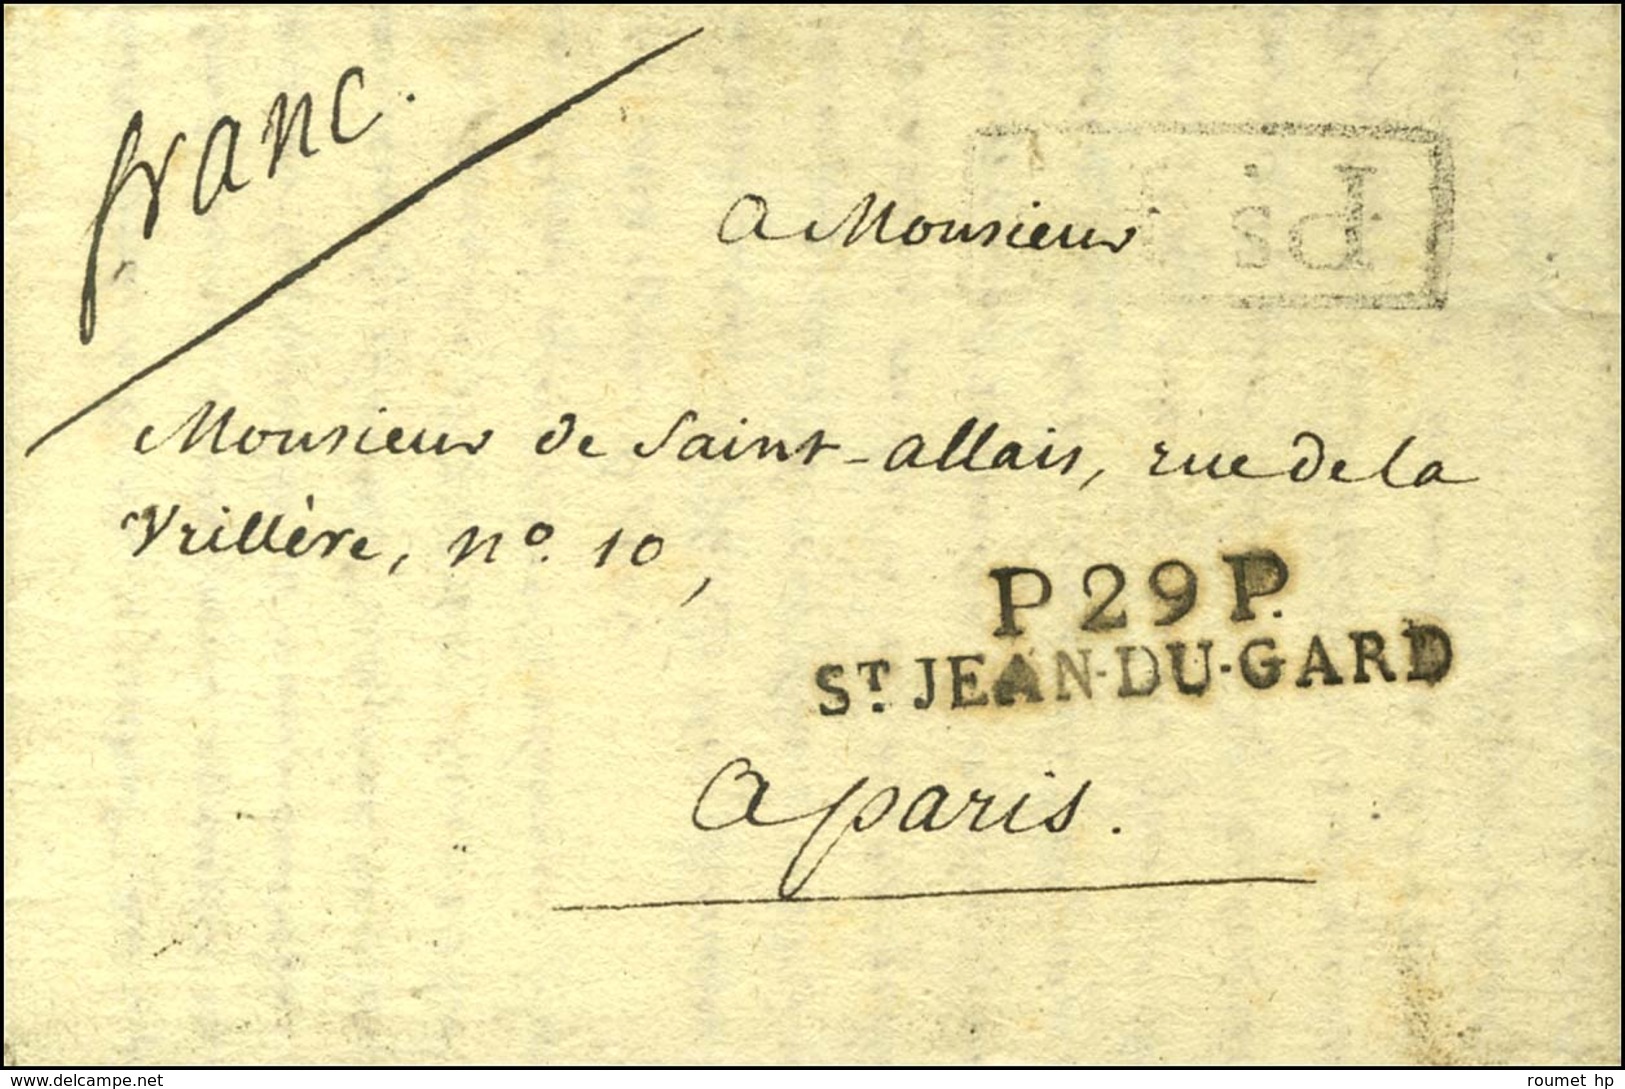 franc.
a Monsieur
Monsieur de Saint-allais, rue de la
Vrillère, nº. 10,
P 29 P.
ST. JEAN-DU-GARD
a paris.
delcampe.net
roumet hp